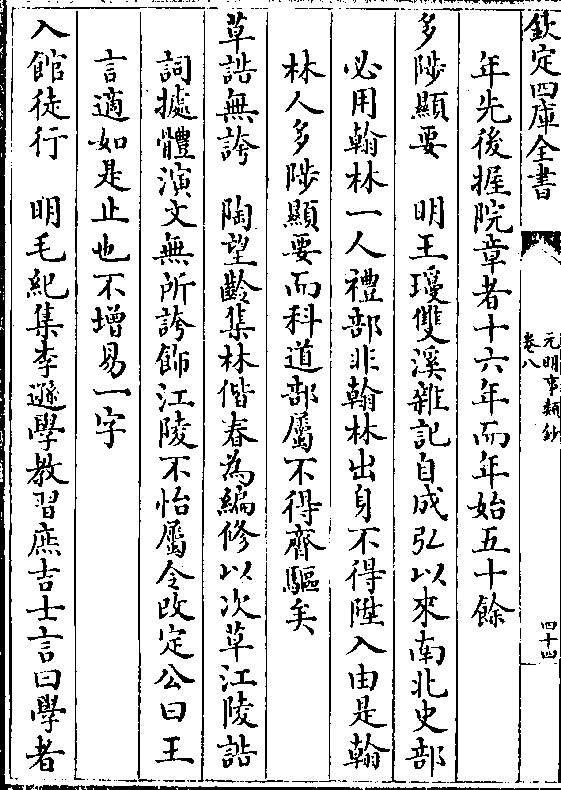 欽定四庫全書
元明事類鈔
卷八
四十四
年先後握院章者十六年而年始五十餘
多陟顯要　明王瓊雙溪雜記自成弘以來南北史部
必用翰林一人禮部非翰林出身不得陞入由是翰
林人多陟顯要而科道部屬不得齊驅矣
草誥無誇　陶望齡集林偕春為編修以次草江陵誥
詞據體演文無所誇飾江陵不怡屬令改定公曰王
言適如是止也不增易一字
入館徒行　明毛紀集李遜學教習庶吉士言曰學者